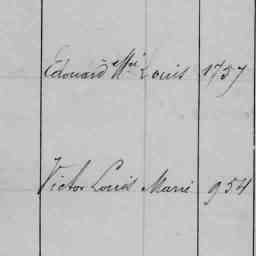 Edouard Mie Louis 1757
Victor Louis Marie 954